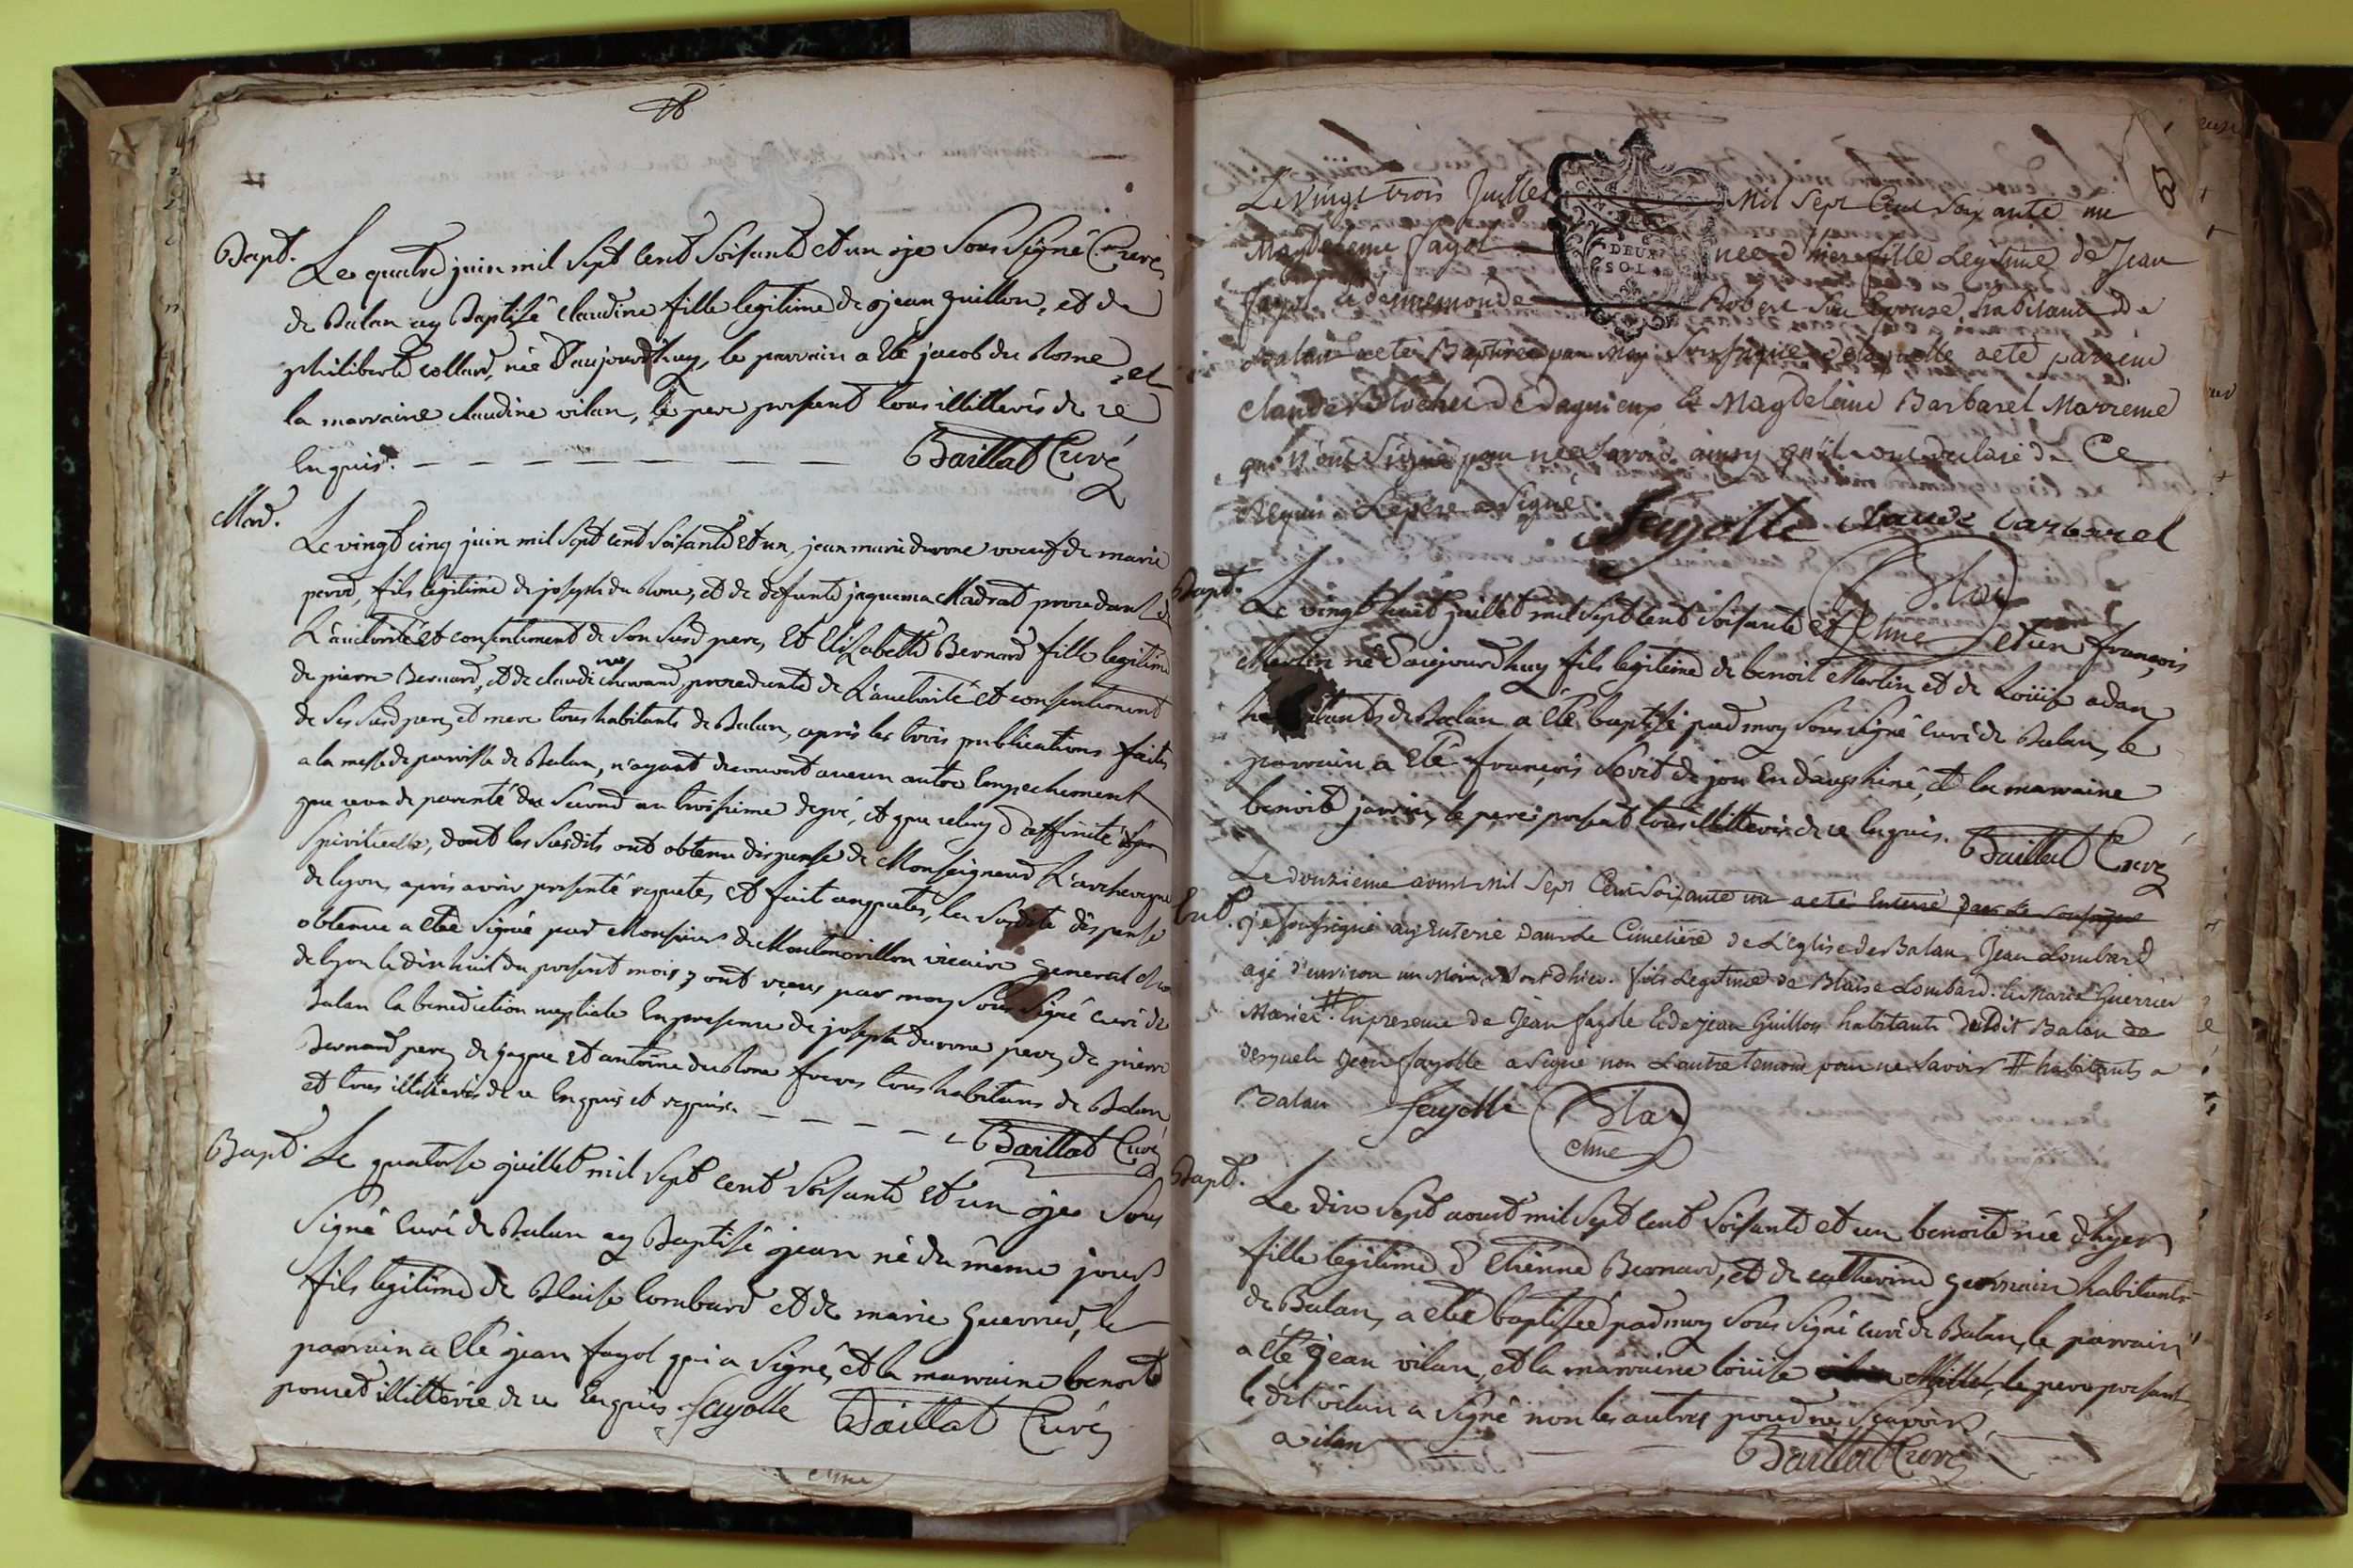 Bapt. Le quatre juin mil sept cent soisante et un je sous signé Curé
de Balan ay Baptisé claudine fille legitime de jean guillon, et de
philiberte collard, née d'aujourdhuy, le parrain a été jacob du Rome, et
la marraine claudine vilan, le pere present tous illitterés de ce
enquis. Baillat Curé
Mar.
Le vingt cinq juin mil sept cent soisante et un, jean marie durone voeuf de marie
perrod, fils legitime de joseph du Rone, et de defunte jaquema Madrat procedant de
L'authorité et consentement de son susd pere, et Elisabette Bernard fille legitime
de pierre Bernard, et de claudine procedante de L'authorité et consentement
de ses susd pere, et mere tous habitants de Balan, apres les trois publications faites
a la messe de paroisse de Balan, n'ayant decouvert aucun autre empechement
que ceux de parenté du second au troisieme degré, et que celuy d'affinité
spirituelle, dont les susdits ont obtenu dispense de Monseigneur L'archeveque
de lyon, apres avoir presenté requetes, et fait enquetes, la susdite dispense
obtenue a eté signée par Monsieur de Montmorillon vicaire general
de lyon le dixhuit du present mois, ont reçus par moy sous signé curé de
Balan la benediction nuptiale en presence de joseph durone pere, de pierre
Bernard pere, de jaque et antoine du Rone freres tous habitans de Balan
et tous illitterés de ce enquis et requis.
Baillat Curé
Bapt. Le quatorse juillet mil sept cent soisante et un je sous
signé Curé de Balan ay Baptisé jean né du même jour
fils legitime de Blaise lombard et de marie Guerrier, le
parrain a eté jean fayol qui a signé, et la marraine benoite
poncet illitterée de ce enquis. fayolle Baillat Curé
Le Vingt trois Juillet Mil Sept Cent Soixante un
Magdeleine fayol née d'hier fille Legitime de Jean
DEUX
SOLS
fayol et dennemonde Robert son Epouse, habitant de
Balan a eté Baptisée par Moy Soussigné de laquelle a eté parrein
claude Rochet de dagnieux Et Magdeleine Barbaret Marreine
qui n'ont signé pour ne le savoir ainsy qu'il ont declaré de Ce
Requis Le père a signé
fayolle claude barbarel
Bapt. Le vingt huit juillet mil sept cent soisante et et un françois
Merlin né d'aujourdhuy fils legitime de benoit Merlin et de Loüise adan
habitants de Balan a eté baptisé par moy sous signé curé de Balan, le
parrain a eté françois de jon en dauphiné, et la marraine
benoite janin, le pere present tous illitterés de ce enquis. Baillat Curé
Le douzieme aoust Mil Sept Cent Soixante un a eté Enterré par le soussigné
Ent. je soussigné ay Enterré dans Le Cimetière de L'Eglise de Balan Jean Lombard
agé d'environ un Mois Mort d'hier. fils Legitime de Blaise Lombard. & Marie Guerrier
Mariés # En presence de Jean fayole & de jean Guillon habitants dudit Balan de
desquels Jean fayolle a signé non L'autre temoin pour ne savoir # habitants a
Balan fayolle
Bapt.
Le dix sept aoust mil sept cent soisante et un benoite née d'hyer
fille legitime d'Etienne Bernard, et de catherine germain habitants
de Balan, a eté baptisée par moy sous signé curé de Balan, le parrain
a eté jean vilan, et la marraine loüise Millet, le pere present
le dit vilan a signé non les autres pour ne sçavoir
vilan Baillat Curé